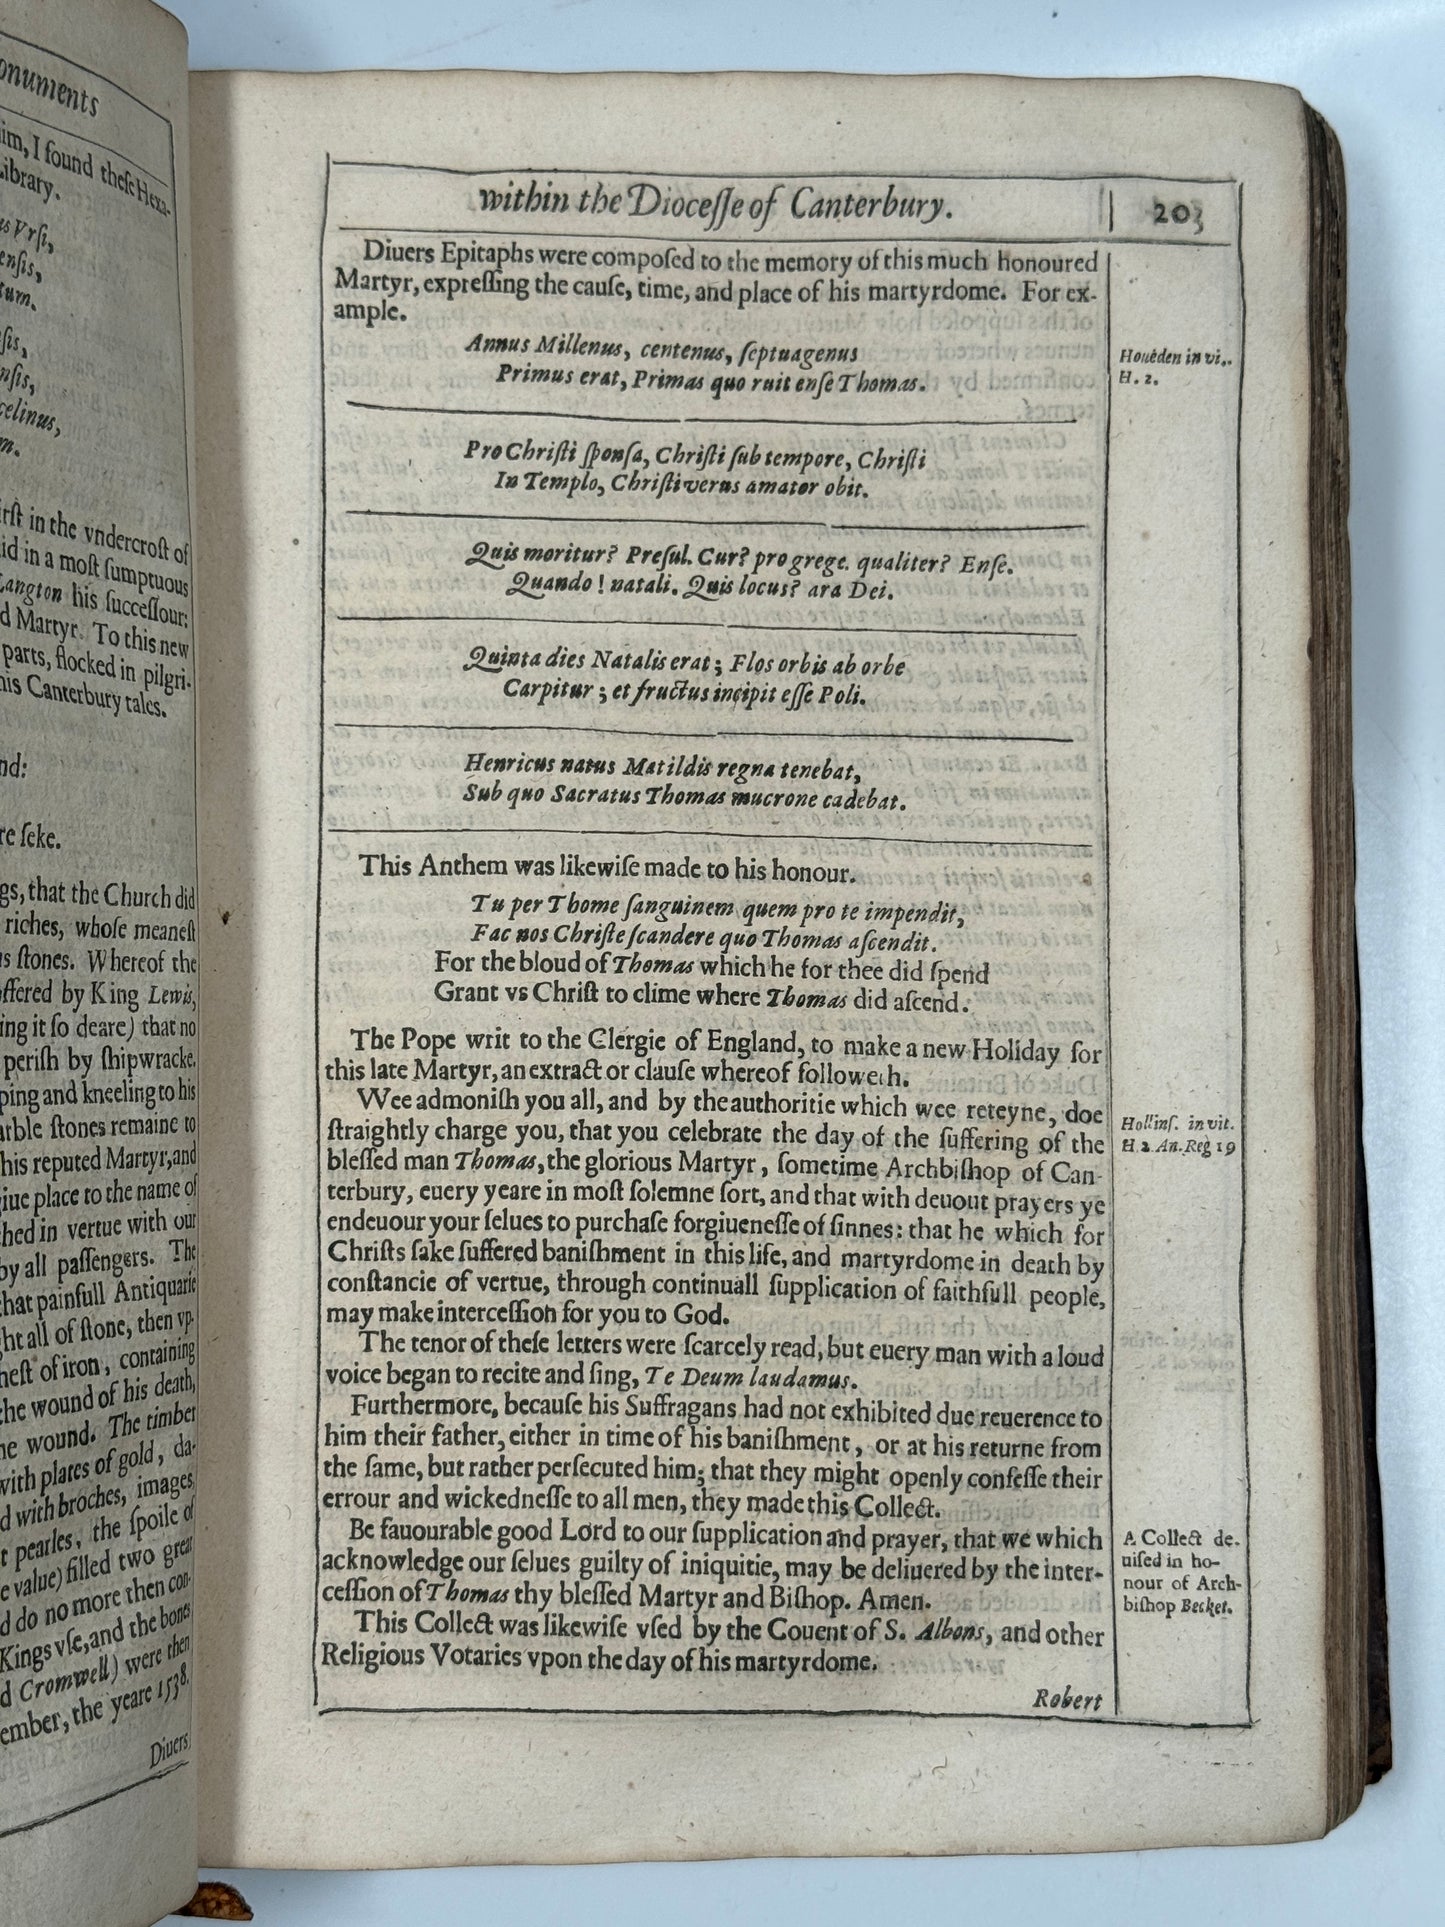 onuments
im, I found theſe Hexa-
Library.
s Vrſi,
enſis,
tum.
ſis,
nſis,
celinus,
m.
rſt in the vndercroſt of
id in a moſt ſumptuous
Langton his ſucceſſour:
d Martyr. To this new
parts, flocked in pilgri-
his Canterbury tales.
nd:
re ſeke.
gs, that the Church did
riches, whoſe meaneſt
s ſtones. Whereof the
ffered by King Lewis,
ing it ſo deare) that no
periſh by ſhipwracke.
ping and kneeling to his
arble ſtones remaine to
his reputed Martyr, and
giue place to the name of
hed in vertue with our
by all paſſengers. The
that painfull Antiquarie
ht all of ſtone, then vp-
heſt of iron, containing
the wound of his death,
he wound. The timber
with plates of gold, da-
d with broches, images,
t pearles, the ſpoile of
e value) filled two great
d do no more then con-
Kings vſe, and the bones
d Cromwell) were then
ember, the yeare 1538.
Diuers
within the Dioceſſe of Canterbury. 203
Diuers Epitaphs were compoſed to the memory of this much honoured
Martyr, expreſſing the cauſe, time, and place of his martyrdome. For ex-
ample.
Annus Millenus, centenus, ſeptuagenus
Primus erat, Primas quo ruit enſe Thomas.
Houeden in vi..
H. 2.
Pro Chriſti ſponſa, Chriſti ſub tempore, Chriſti
In Templo, Chriſti verus amator obit.
Quis moritur? Preſul. Cur? pro grege. qualiter? Enſe.
Quando! natali. Quis locus? ara Dei.
Quinta dies Natalis erat; Flos orbis ab orbe
Carpitur; et fructus incipit eſſe Poli.
Henricus natus Matildis regna tenebat,
Sub quo Sacratus Thomas mucrone cadebat.
This Anthem was likewiſe made to his honour.
Tu per Thome ſanguinem quem pro te impendit,
Fac nos Chriſte ſcandere quo Thomas aſcendit.
For the bloud of Thomas which he for thee did ſpend
Grant vs Chriſt to clime where Thomas did aſcend.
The Pope writ to the Clergie of England, to make a new Holiday for
this late Martyr, an extract or clauſe whereof followeth.
Wee admoniſh you all, and by the authoritie which wee reteyne, doe
ſtraightly charge you, that you celebrate the day of the ſuffering of the
bleſſed man Thomas, the glorious Martyr, ſometime Archbiſhop of Can-
terbury, euery yeare in moſt ſolemne ſort, and that with deuout prayers ye
endeuour your ſelues to purchaſe forgiueneſſe of ſinnes: that he which for
Chriſts ſake ſuffered baniſhment in this life, and martyrdome in death by
conſtancie of vertue, through continuall ſupplication of faithfull people,
may make interceſſion for you to God.
Hollinſ. in vit.
H. 2 An. Reg 19
The tenor of theſe letters were ſcarcely read, but euery man with a loud
voice began to recite and ſing, Te Deum laudamus.
Furthermore, becauſe his Suffragans had not exhibited due reuerence to
him their father, either in time of his baniſhment, or at his returne from
the ſame, but rather perſecuted him; that they might openly confeſſe their
errour and wickedneſſe to all men, they made this Collect.
Be fauourable good Lord to our ſupplication and prayer, that we which
acknowledge our ſelues guilty of iniquitie, may be deliuered by the inter-
ceſſion of Thomas thy bleſſed Martyr and Biſhop. Amen.
A Collect de-
uiſed in ho-
nour of Arch-
biſhop Becket.
This Collect was likewiſe vſed by the Couent of S. Albons, and other
Religious Votaries vpon the day of his martyrdome.
Robert